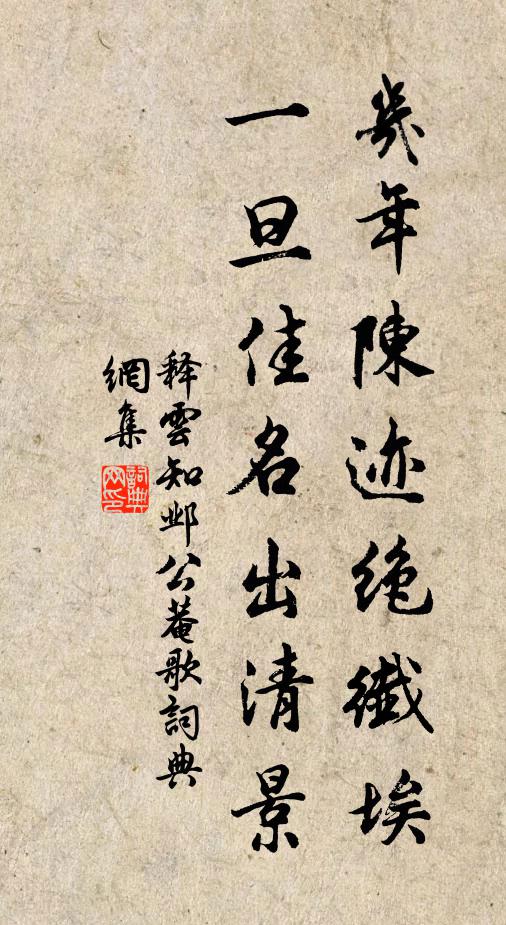 幾年陳迹絶纖埃
一旦佳名出清景
释雲知邺公菴歌詞典
網集
詞典网印